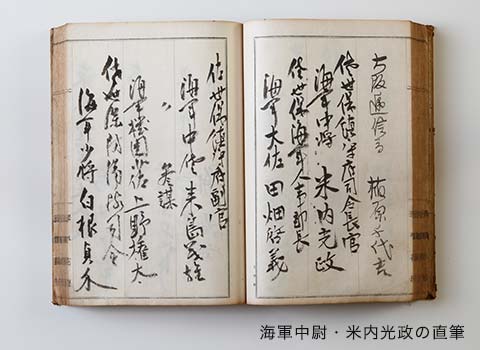 大阪逓信局 千代吉
佐世保鎮守府司令長官
海軍中将 米内光政
佐世保海軍人事部長
海軍大佐 田畑啓義
佐世保鎮守府副官
海軍中佐
〃 参謀
海軍機関少佐 上野権太
佐世保防備隊司令
海軍少将 白根貞介
海軍中尉・米内光政の直筆